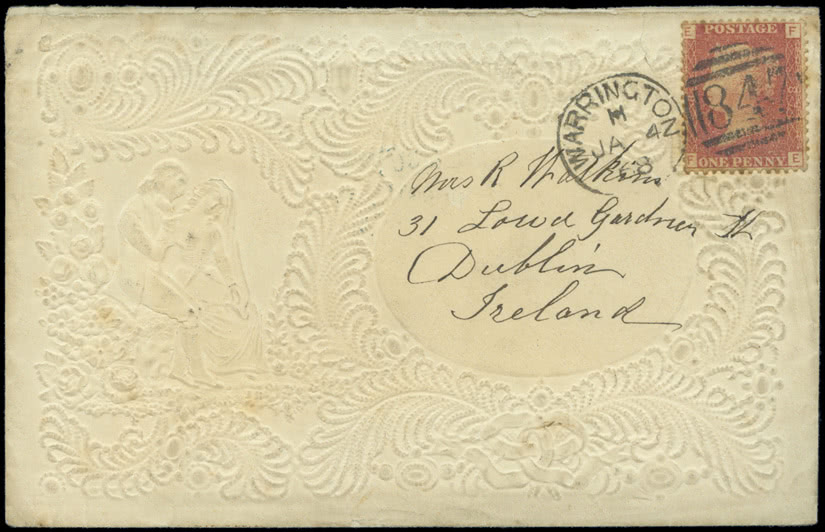 E F
POSTAGE
84
F E
ONE PENNY
WARRINGTON
M
JA 4
Mrs R Watkins
31 Lowd Gardner St
Dublin
Ireland